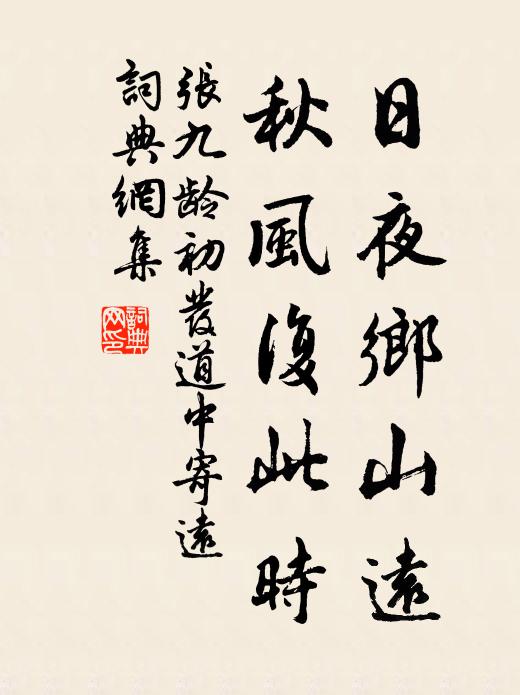 日夜鄉山遠
秋風復此時
張九齡初發道中寄遠
詞典網集
詞典网印